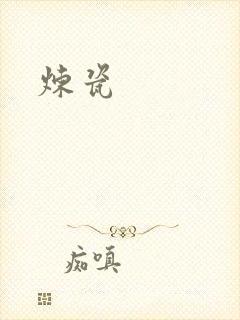 炼瓷
痴嗔